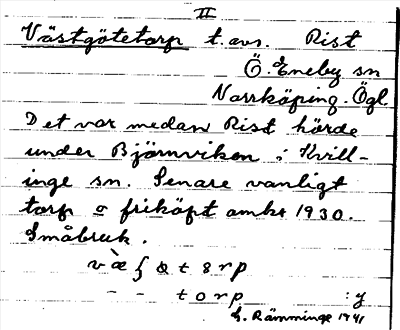 II
Västgötetorp t. avs. Rist
Ö. Eneby sn
Norrköping. Ögl.
Det var medan Rist hörde
under Björnviken i Kvill-
inge sn. Senare vanligt
torp o friköpt omkr 1930.
Småbruk.
- - torp :y
G. Rämminge 1941